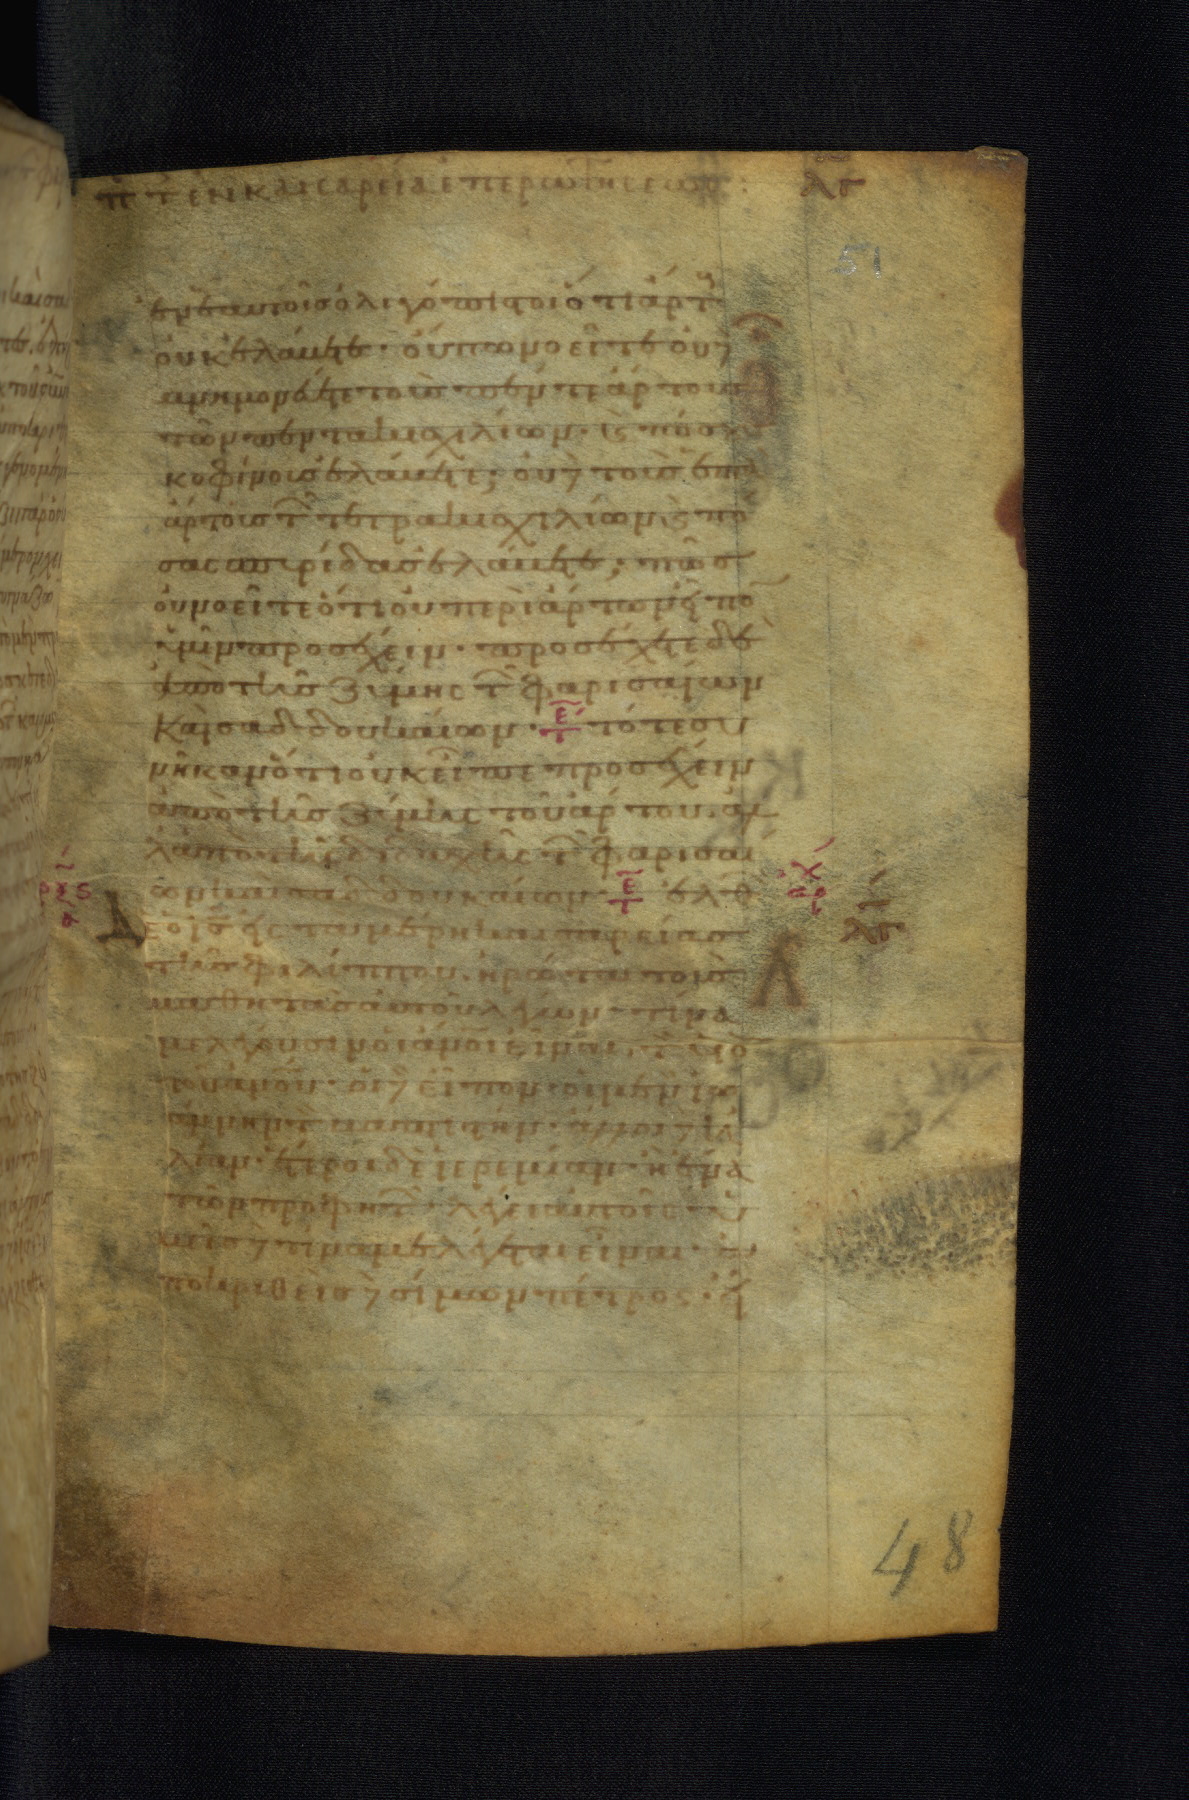 π τ εν καισαρεία επερωτησεως : λγ
51
εν εαυτοῖσ ὀλιγόπιστοι ὅτι ἄρτ
οὐκ ἐλάβετε· οὔπω νοεῖτε οὐδ
μνημονεύετε τοὺσ πέντε ἄρτουσ
τῶν πεντακισχιλίων· κς πόσουσ
κοφίνουσ ἐλάβετε; οὐδ τοὺσ ἑπτὰ
ἄρτουσ τ τετρακισχιλίων κς πό
σας σπυρίδασ ἐλάβετε; πῶσ
οὐ νοεῖτε ὅτι οὐ περὶ ἄρτων εἶπο
ὑμῖν προσέχειν· προσέχετε δὲ
ἀπὸ τῆσ ζύμης τ φαρισαίων
καὶ σαδδουκαίων· ε τ τότε συ
νῆκαν ὅτι οὐκ εἶπε προσέχειν
ἀπὸ τῆσ ζύμης τοῦ ἄρτου. ἀλ
λ ἀπὸ τῆσ διδαχῆς τ φαρισαί
ων καὶ σαδδουκαίων· ε τ ἐλθ
ρξς
Δὲ ὁ ις εἰς τὰ μέρη καισαρείασ
λγ
τῆσ φιλίππου. ἠρώτα τοὺσ
μαθητὰσ αὐτοῦ λέγων· τίνα
με λέγουσιν οἱ ἄνοι εἶναι. τ υἱὸ
τοῦ ἀνου· οἱ δ εἶπον· οἱ μὲν ἰω
άννην τ βαπτιστήν· ἄλλοι δ ἠλ
λίαν· ἕτεροι δὲ ἱερεμίαν· ἢ ἕνα
τῶν προφητ· λέγει αὐτοῖς· ὑ
μεῖσ δ τίνα με λέγεται εἶναι· ἀ
ποκριθεὶσ δ σίμων πέτρος· εἶ
48